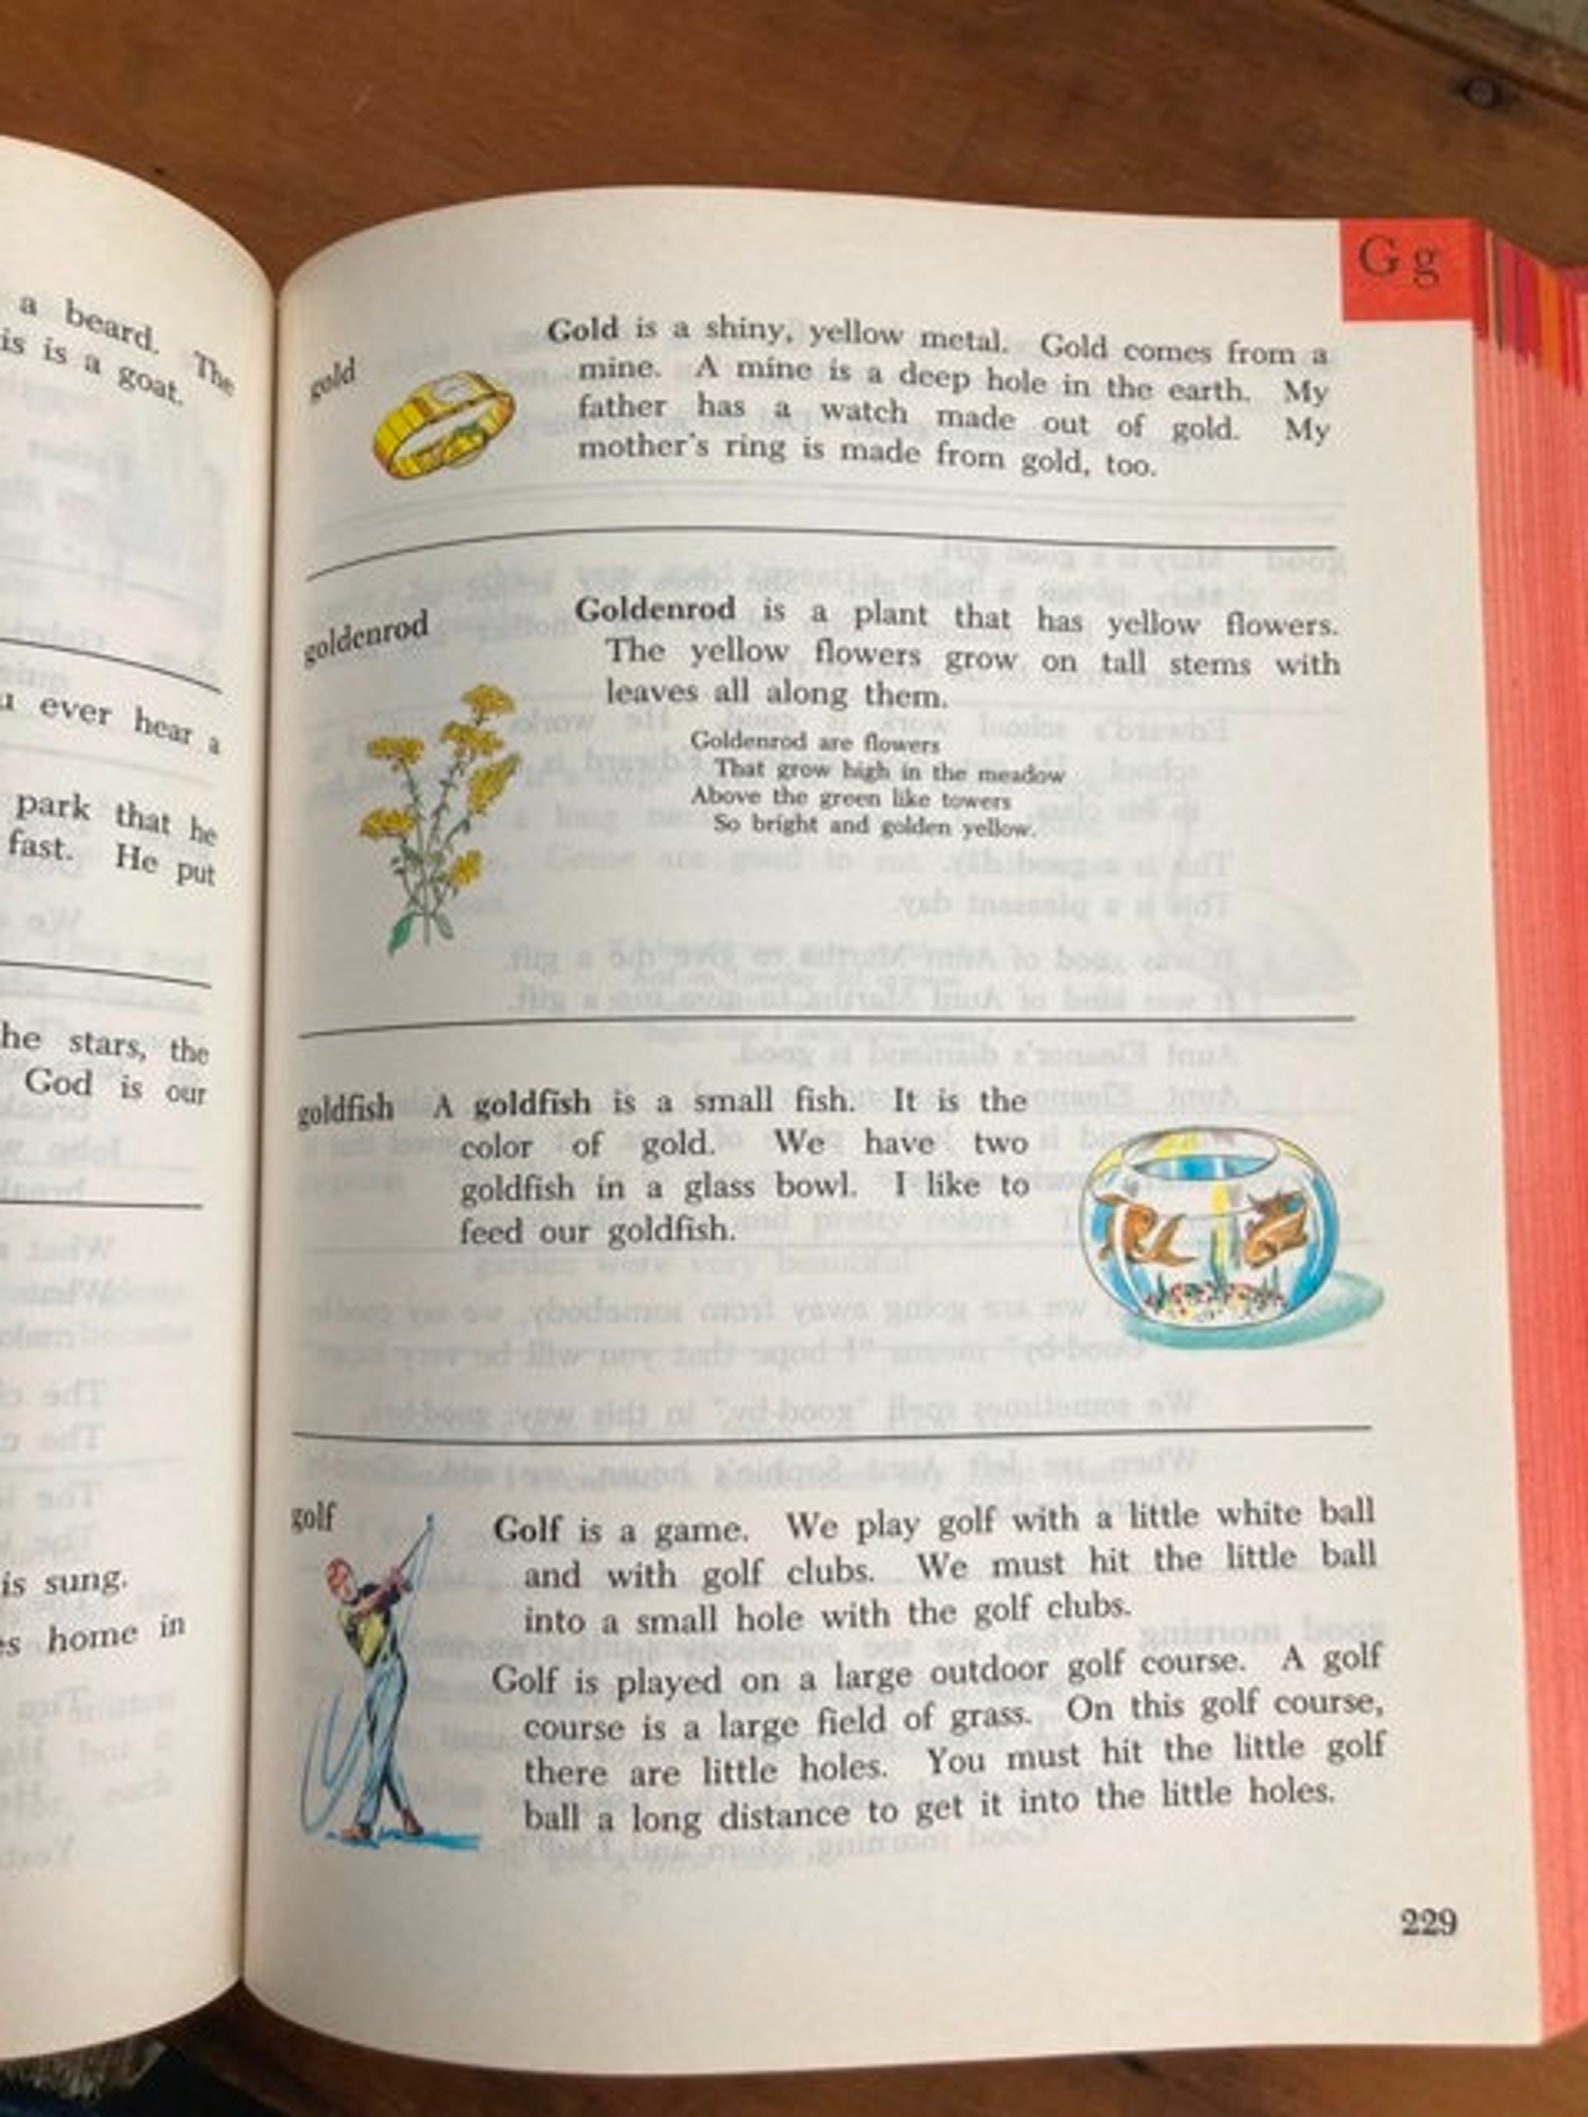 a beard. The
is is a goat.
ever hear a
park that he
fast. He put
he stars, the
God is our
is sung.
es home in
G g
gold
Gold is a shiny, yellow metal. Gold comes from a
mine. A mine is a deep hole in the earth. My
father has a watch made out of gold. My
mother's ring is made from gold, too.
goldenrod
Goldenrod is a plant that has yellow flowers.
The yellow flowers grow on tall stems with
leaves all along them.
Goldenrod are flowers
That grow high in the meadow
Above the green like towers
So bright and golden yellow.
goldfish A goldfish is a small fish. It is the
color of gold. We have two
goldfish in a glass bowl. I like to
feed our goldfish.
golf
Golf is a game. We play golf with a little white ball
and with golf clubs. We must hit the little ball
into a small hole with the golf clubs.
Golf is played on a large outdoor golf course. A golf
course is a large field of grass. On this golf course,
there are little holes. You must hit the little golf
ball a long distance to get it into the little holes.
229